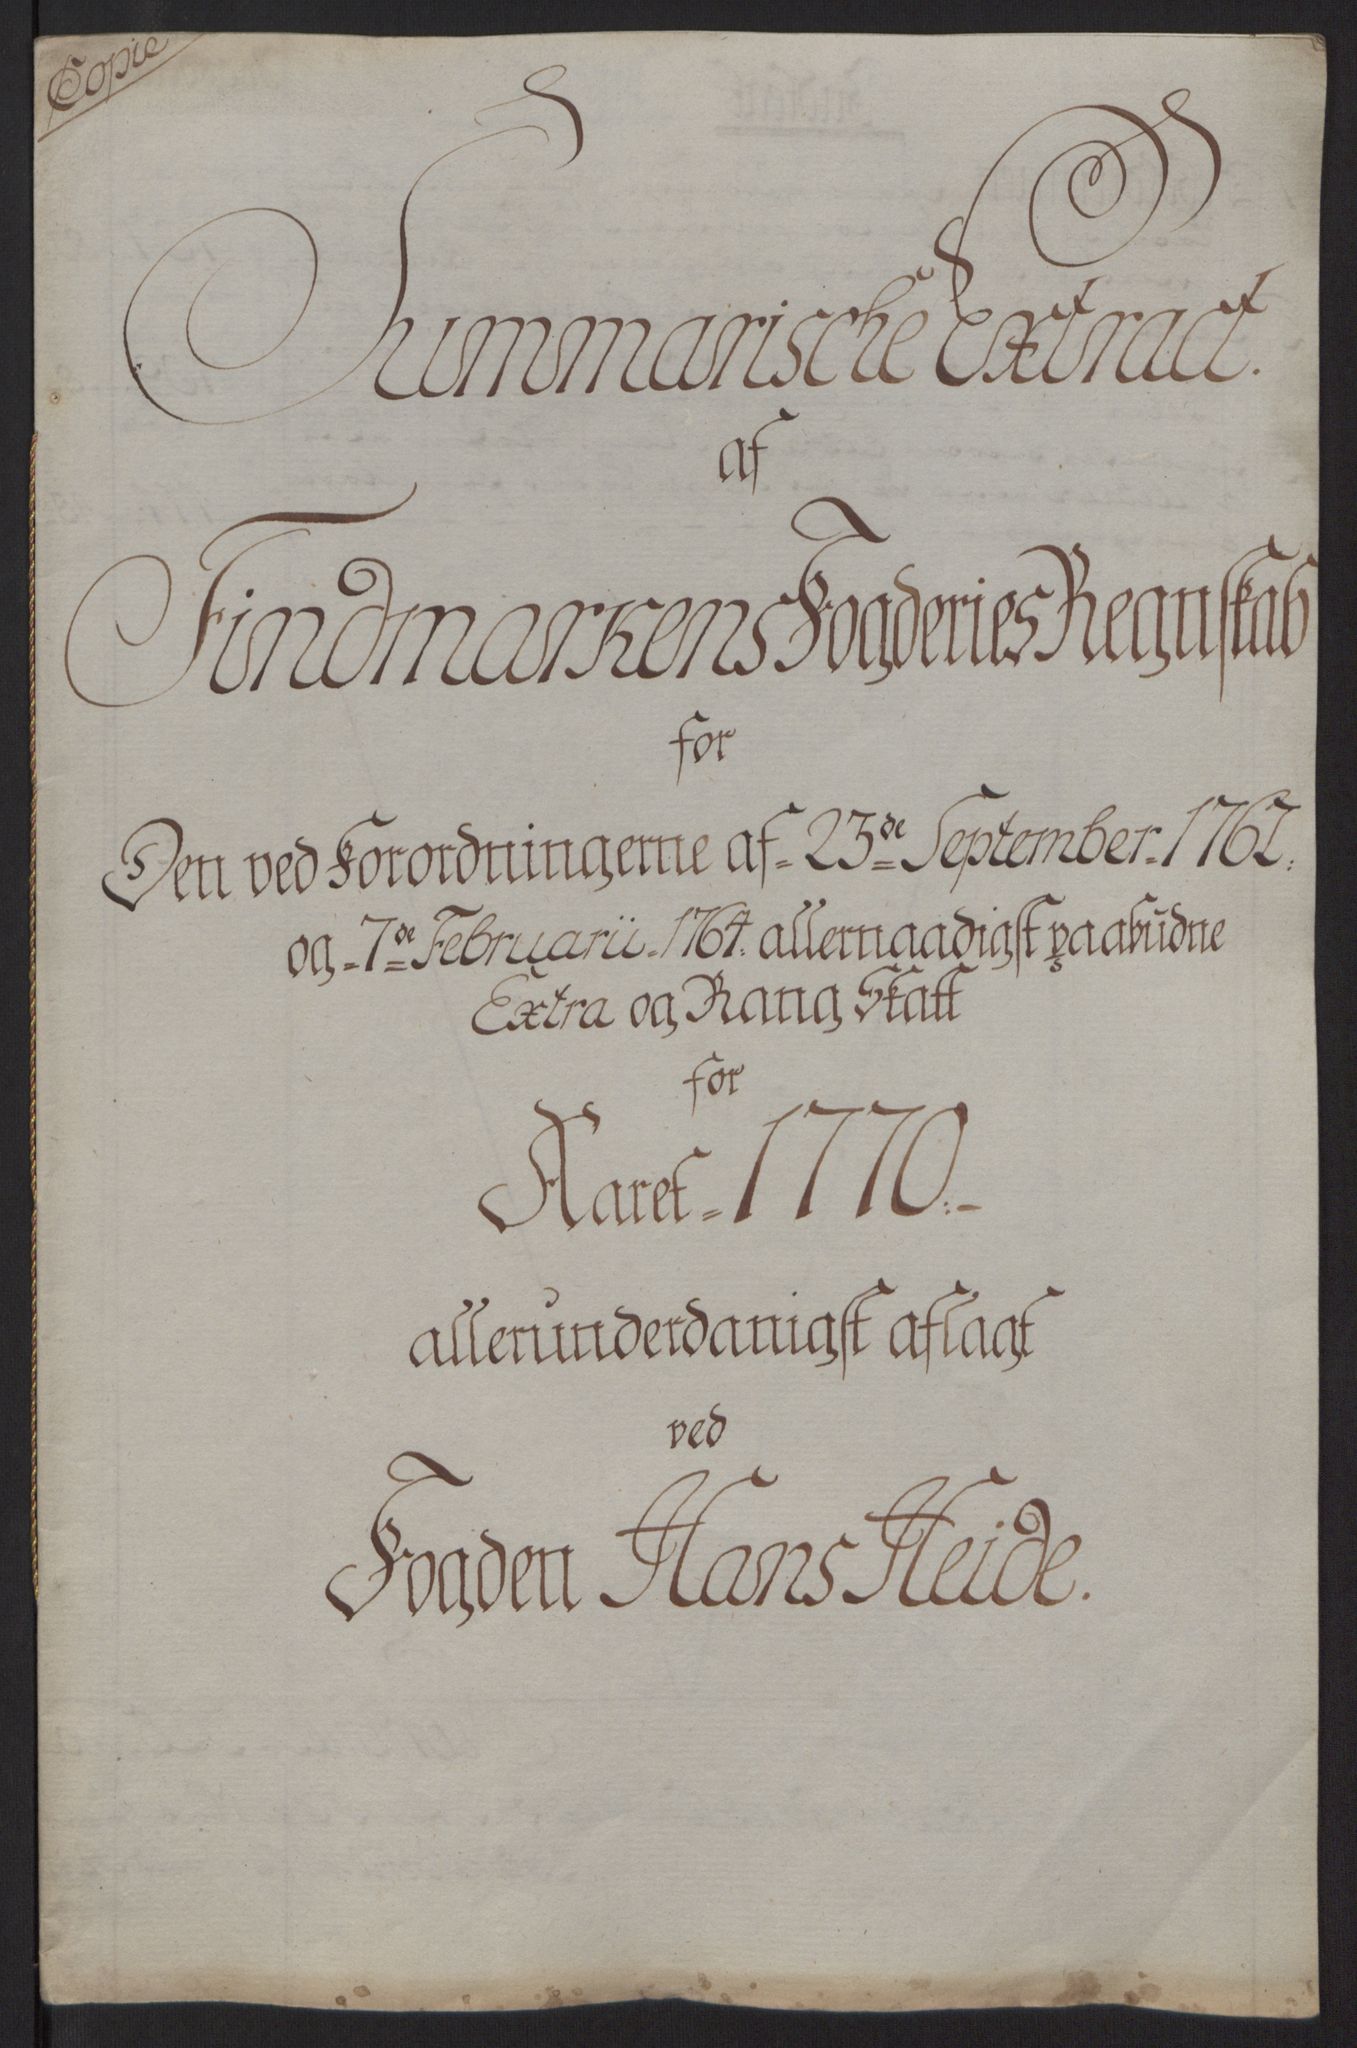 Copie
Summarische Extract.
af
Findmarkens Fogderies Regnskab
for
Den ved Forordningerne af 23de September 1762.
og 7de Februarii 1764. allernaadigst paabudne
Extra og Rang Skatt
for
Aaret 1770.
allerunderdanigst aflagt
ved
Fogden Hans Heide.